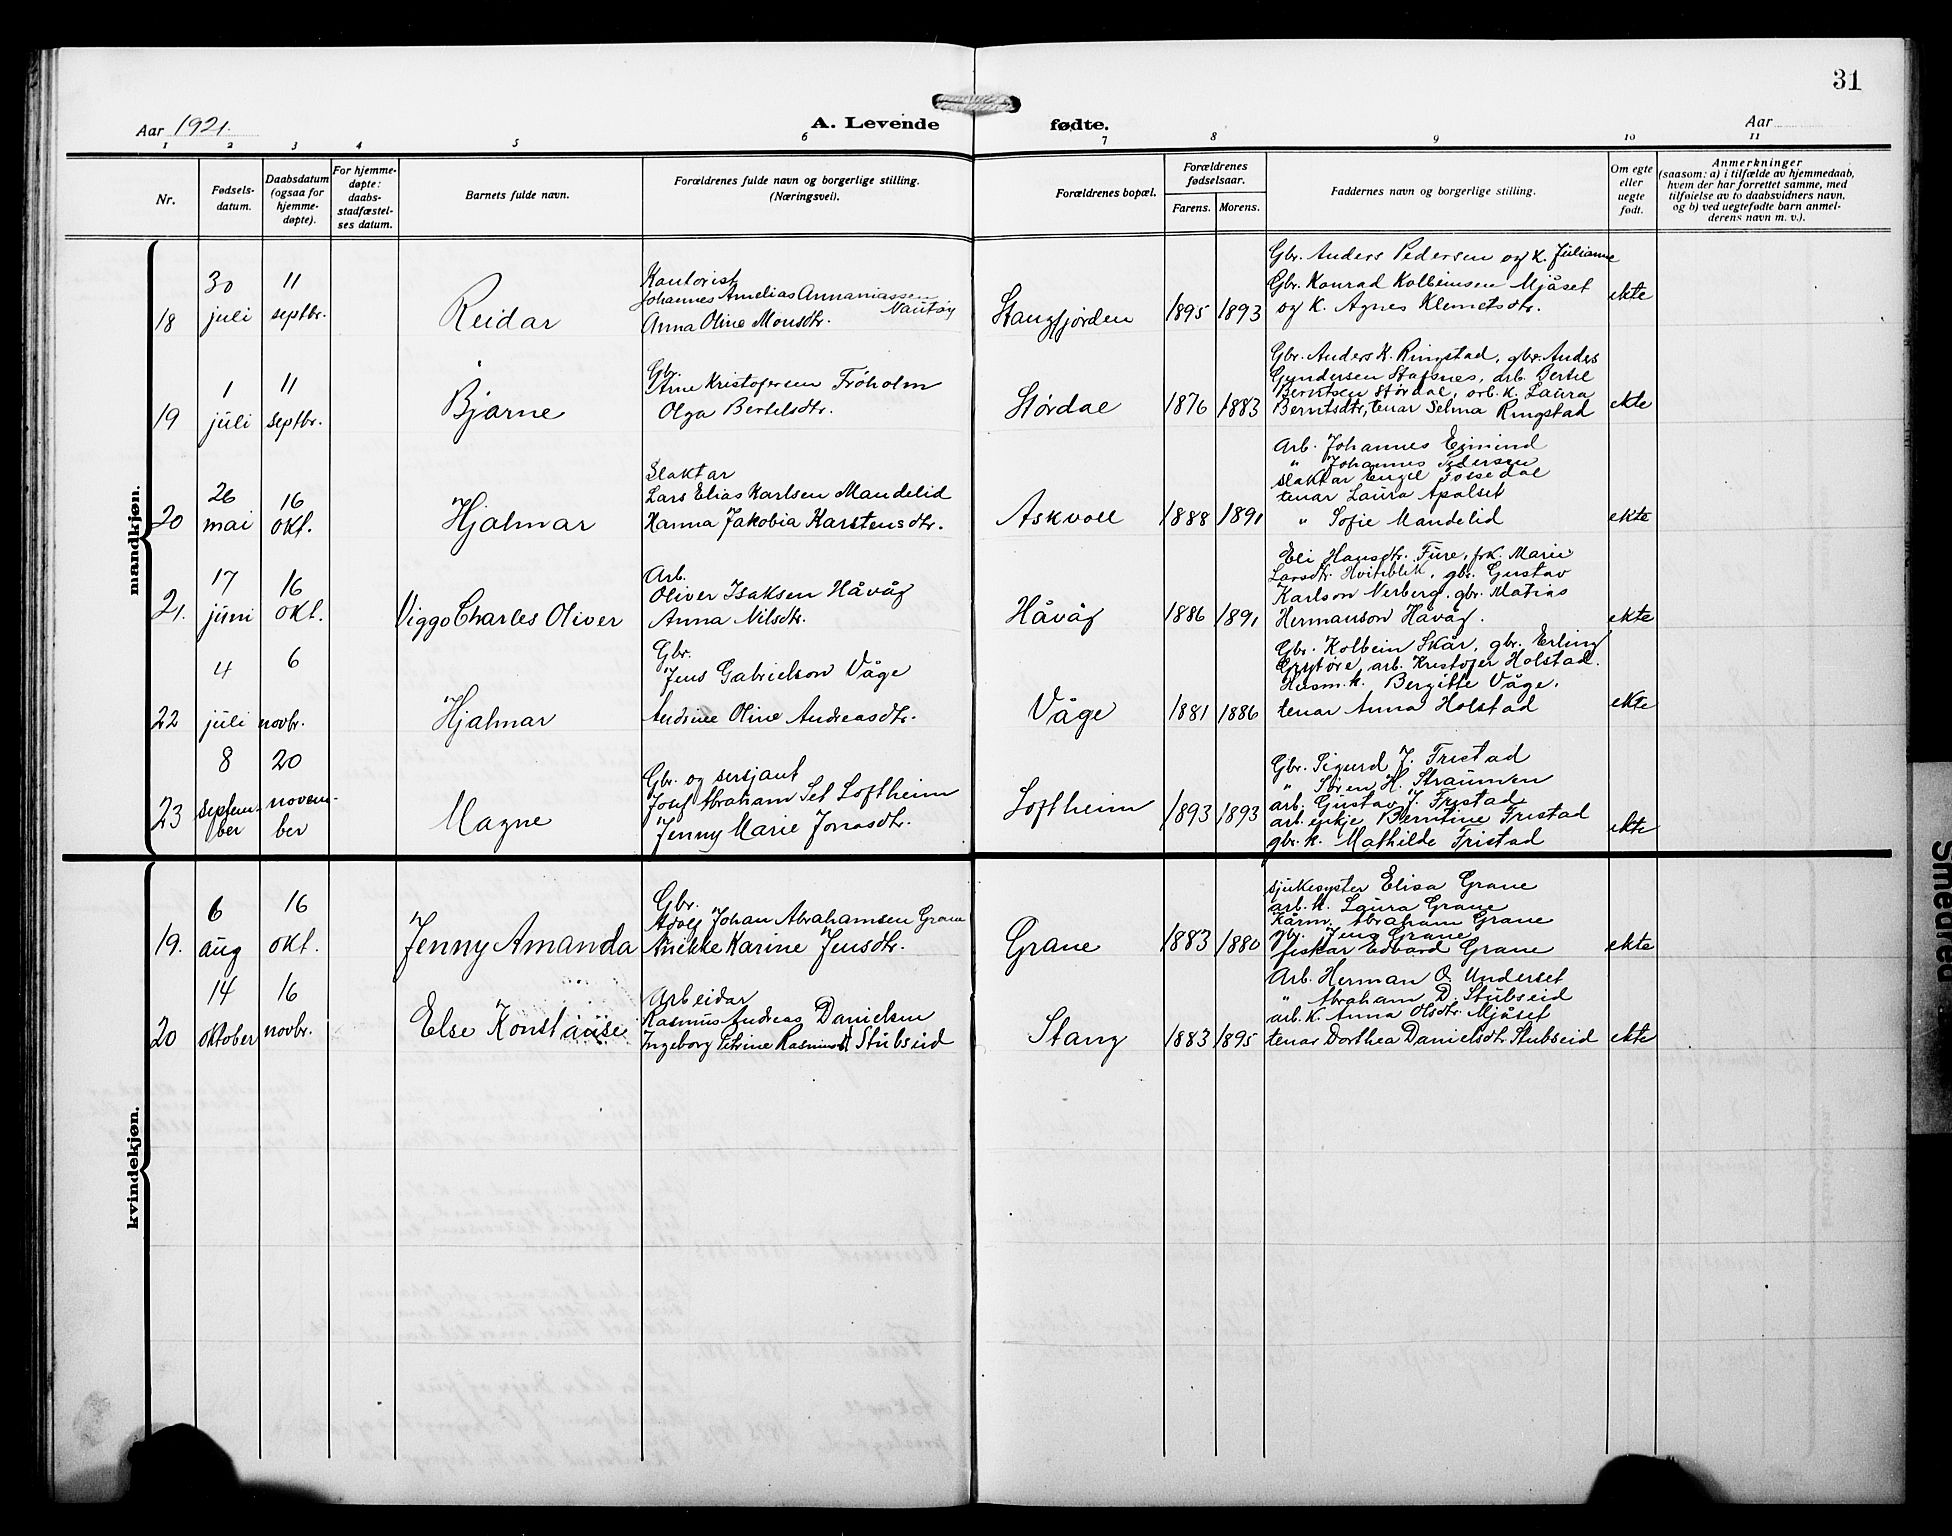 31
Aar 1921.
A. Levende fødte.
Aar
1 2 3 4 5 6 7 8 9 10 11
Nr.
Fødsels-
datum.
Daabsdatum
(ogsaa for
hjemme-
døpte).
For hjemme-
døpte:
daabs-
stadfæstel-
ses datum.
Barnets fulde navn.
Forældrenes fulde navn og borgerlige stilling.
(Næringsvei).
Forældrenes bopæl.
Forældrenes
fødselsaar.
Farens. Morens.
Faddernes navn og borgerlige stilling.
Om egte
eller
uegte
født.
Anmerkninger
(saasom: a) i tilfælde av hjemmedaab,
hvem der har forrettet samme, med
tilføielse av to daabsvidners navn,
og b) ved uegtefødte barn anmel-
derens navn m. v.).
mandkjøn.
18
30
juli
11
septbr.
Reidar
Kontorist
Johannes Amelias Annaniassen
Nautøy
Anna Oline Monsdtr.
Stangfjorden
1895 1893
Gbr. Anders Pedersen og k. Julianne
Gbr. Konrad Kolbeinsen Mjåset
og k. Agnes Klemetsdtr.
ekte
19
1
juli
11
septbr.
Bjarne
Gbr.
Arne Kristofersen Frøholm
Olga Bertelsdtr.
Størdal
1876 1883
Gbr. Anders K. Ringstad, gbr. Anders
Gundersen Stafsnes, arb. Bertil
Berntsen Størdal, arb. k. Laura
Berntsdtr, tenar Selma Ringstad
ekte
20
26
mai
16
okt.
Hjalmar
Slaktar
Lars Elias Karlsen Mandelid
Hanna Jakobia Karstensdtr.
Askvoll
1888 1891
Arb. Johannes Eimind
" Johannes Pedersen
slaktar Engel Fossedal
tenar Laura Apalset
" Sofie Mandelid
ekte
21.
17
juni
16
okt.
Viggo Charles Oliver
Arb.
Oliver Isaksen Håvåg
Anna Nilsdtr.
Håvåg
1886 1891
Eli Hansdtr. Fure, frk. Marie
Larsdtr. Hviteblik, gbr. Gustav
Karlson Nerberg, gbr. Matias
Hermanson Håvåg.
ekte
22
4
juli
6
novbr.
Hjalmar
Gbr.
Jens Gabrielson Våge
Andrine Oline Andreasdtr.
Våge
1881 1886
Gbr. Kolbein Skår, gbr. Erling
Grytøre, arb. Kristofer Holstad.
Husm. k. Bergitte Våge.
tenar Anna Holstad
ekte
23
8
septem-
ber
20
novem-
ber
Magne
Gbr. og sersjant
Josef Abraham Set Loftheim
Jenny Marie Jonasdtr.
Loftheim
1893 1893
Gbr. Sigurd J. Fristad
" Søren H. Straumen
arb. Gustav J. Fristad
arb. enkje Berntine Fristad
gbr. k. Mathilde Fristad
ekte
kvindekjøn.
19.
6
aug
16
okt.
Jenny Amanda
Gbr.
Adolf Johan Abrahamsen Grane
Anikke Karine Jensdtr.
Grane
1883 1880
sjukesyster Elisa Grane
arb. k. Laura Grane
Kårm. Abraham Grane
gbr. Jens Grane
fiskar Edvard Grane
ekte
20
14
oktober
16
novbr.
Else Konstanse
Arbeidar
Rasmus Andreas Danielsen
Ingeborg Petrine Rasmusdt Stubseid
Stang
1883 1895
Arb. Herman O. Underset
" Abraham D. Stubseid
arb. k. Anna Olsdtr. Mjåset
tenar Dorthea Danielsdtr Stubseid
ekte